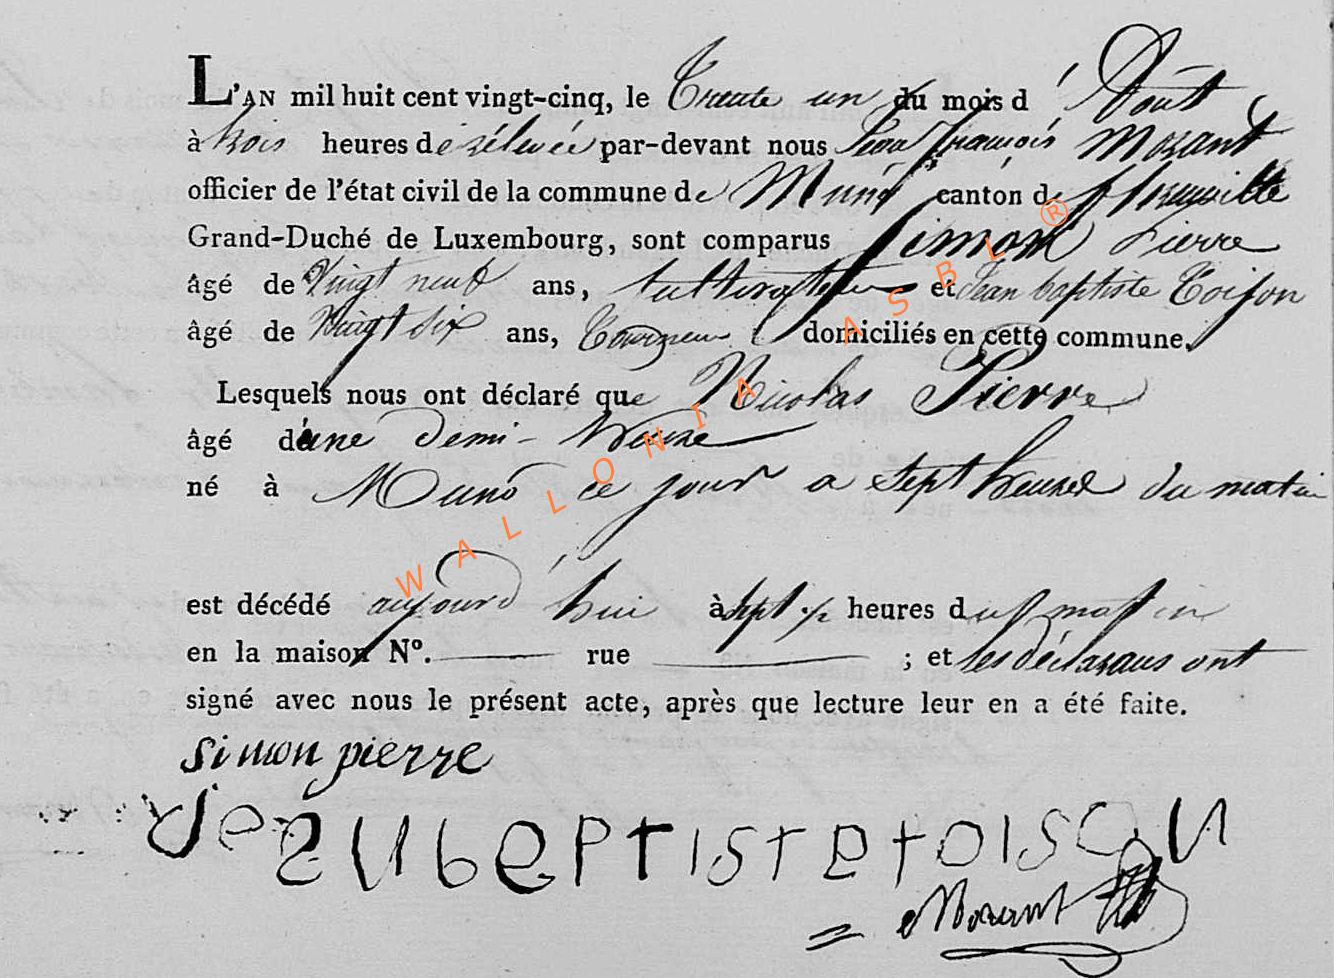 L'AN mil huit cent vingt-cinq, le Trente un du mois d'Aout
à trois heures de rélevée par-devant nous Jean françois Mozant
officier de l'état civil de la commune de Muno canton de florenville
Grand-Duché de Luxembourg, sont comparus Simon Pierre
âgé de Vingt neuf ans, cultivateur et Jean baptiste Toison
âgé de Vingt Six ans, domiciliés en cette commune.
Lesquels nous ont déclaré que Nicolas Pierre
âgé d'une demi-heure
né à Muno ce jour a sept heures du matin
est décédé aujourd'hui à sept ½ heures du matin
en la maison N°. rue ; et les déclarans ont
signé avec nous le présent acte, après que lecture leur en a été faite.
simon pierre
Jean baptiste toison
Mozant
WALLONIA ASBL®